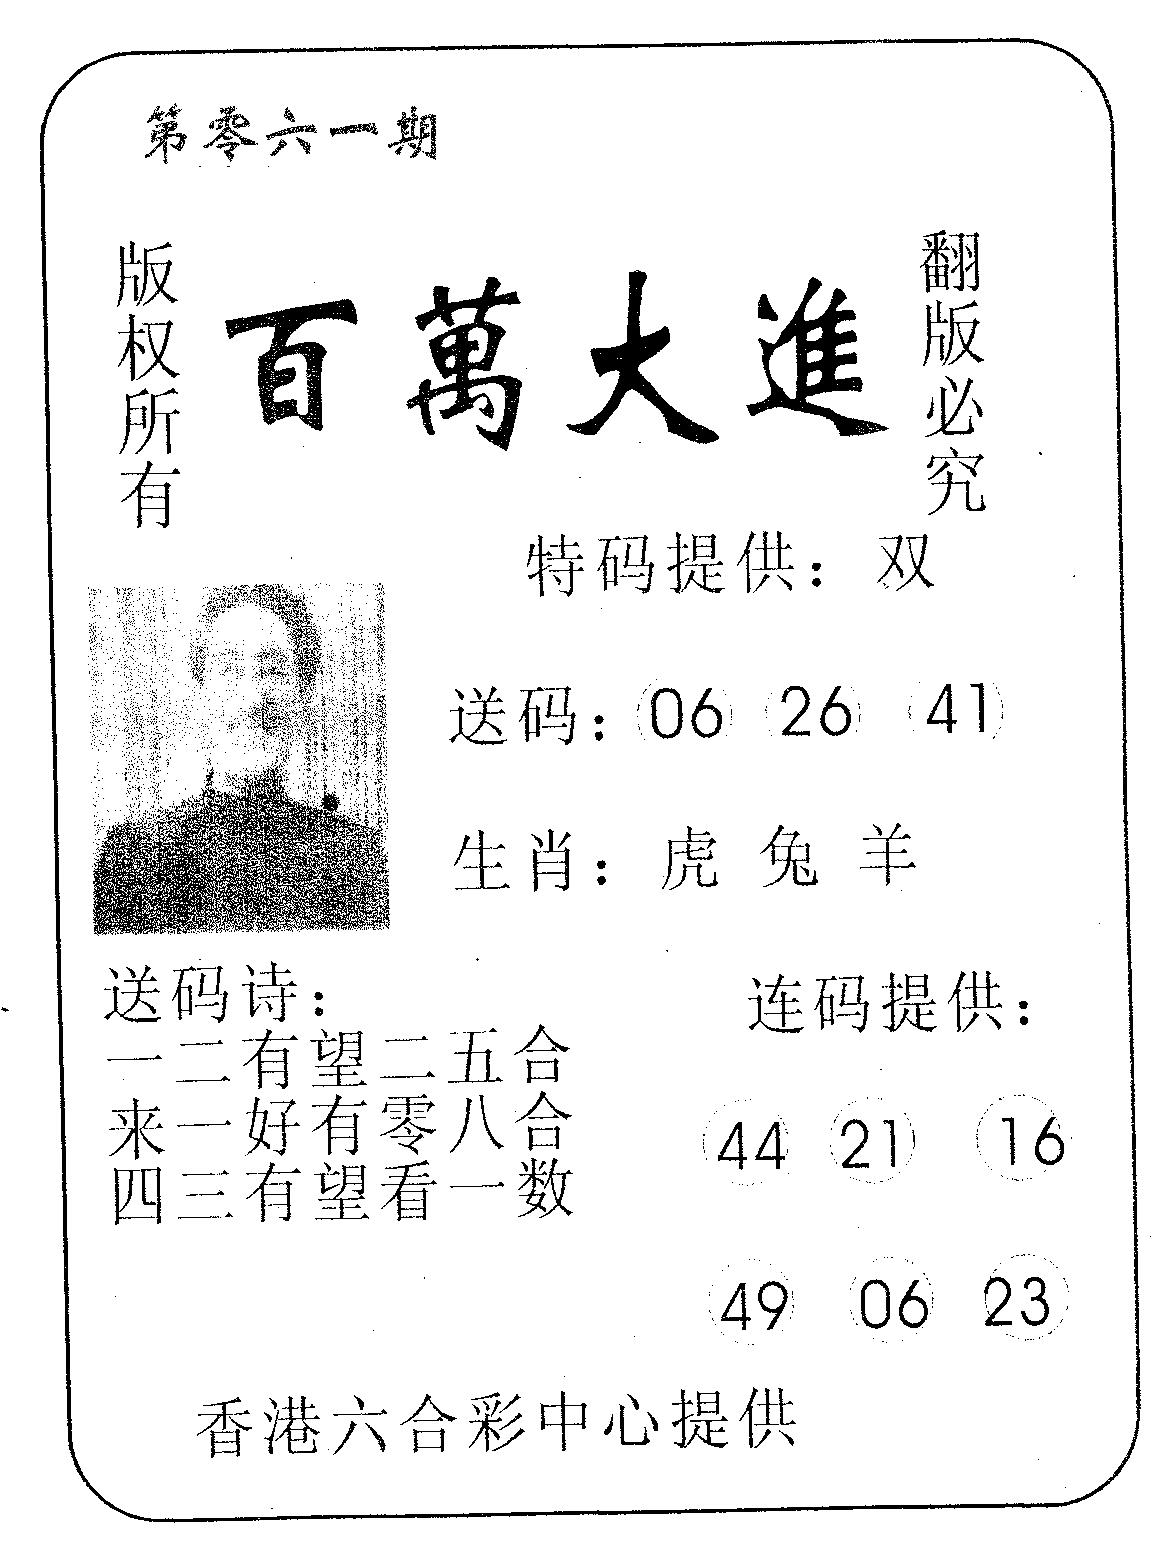 第零六一期
版权所有
百萬大進
翻版必究
特码提供：双
送码：06 26 41
生肖：虎 兔 羊
送码诗：
一二有望二五合
来一好有零八合
四三有望看一数
连码提供：
44 21 16
49 06 23
香港六合彩中心提供